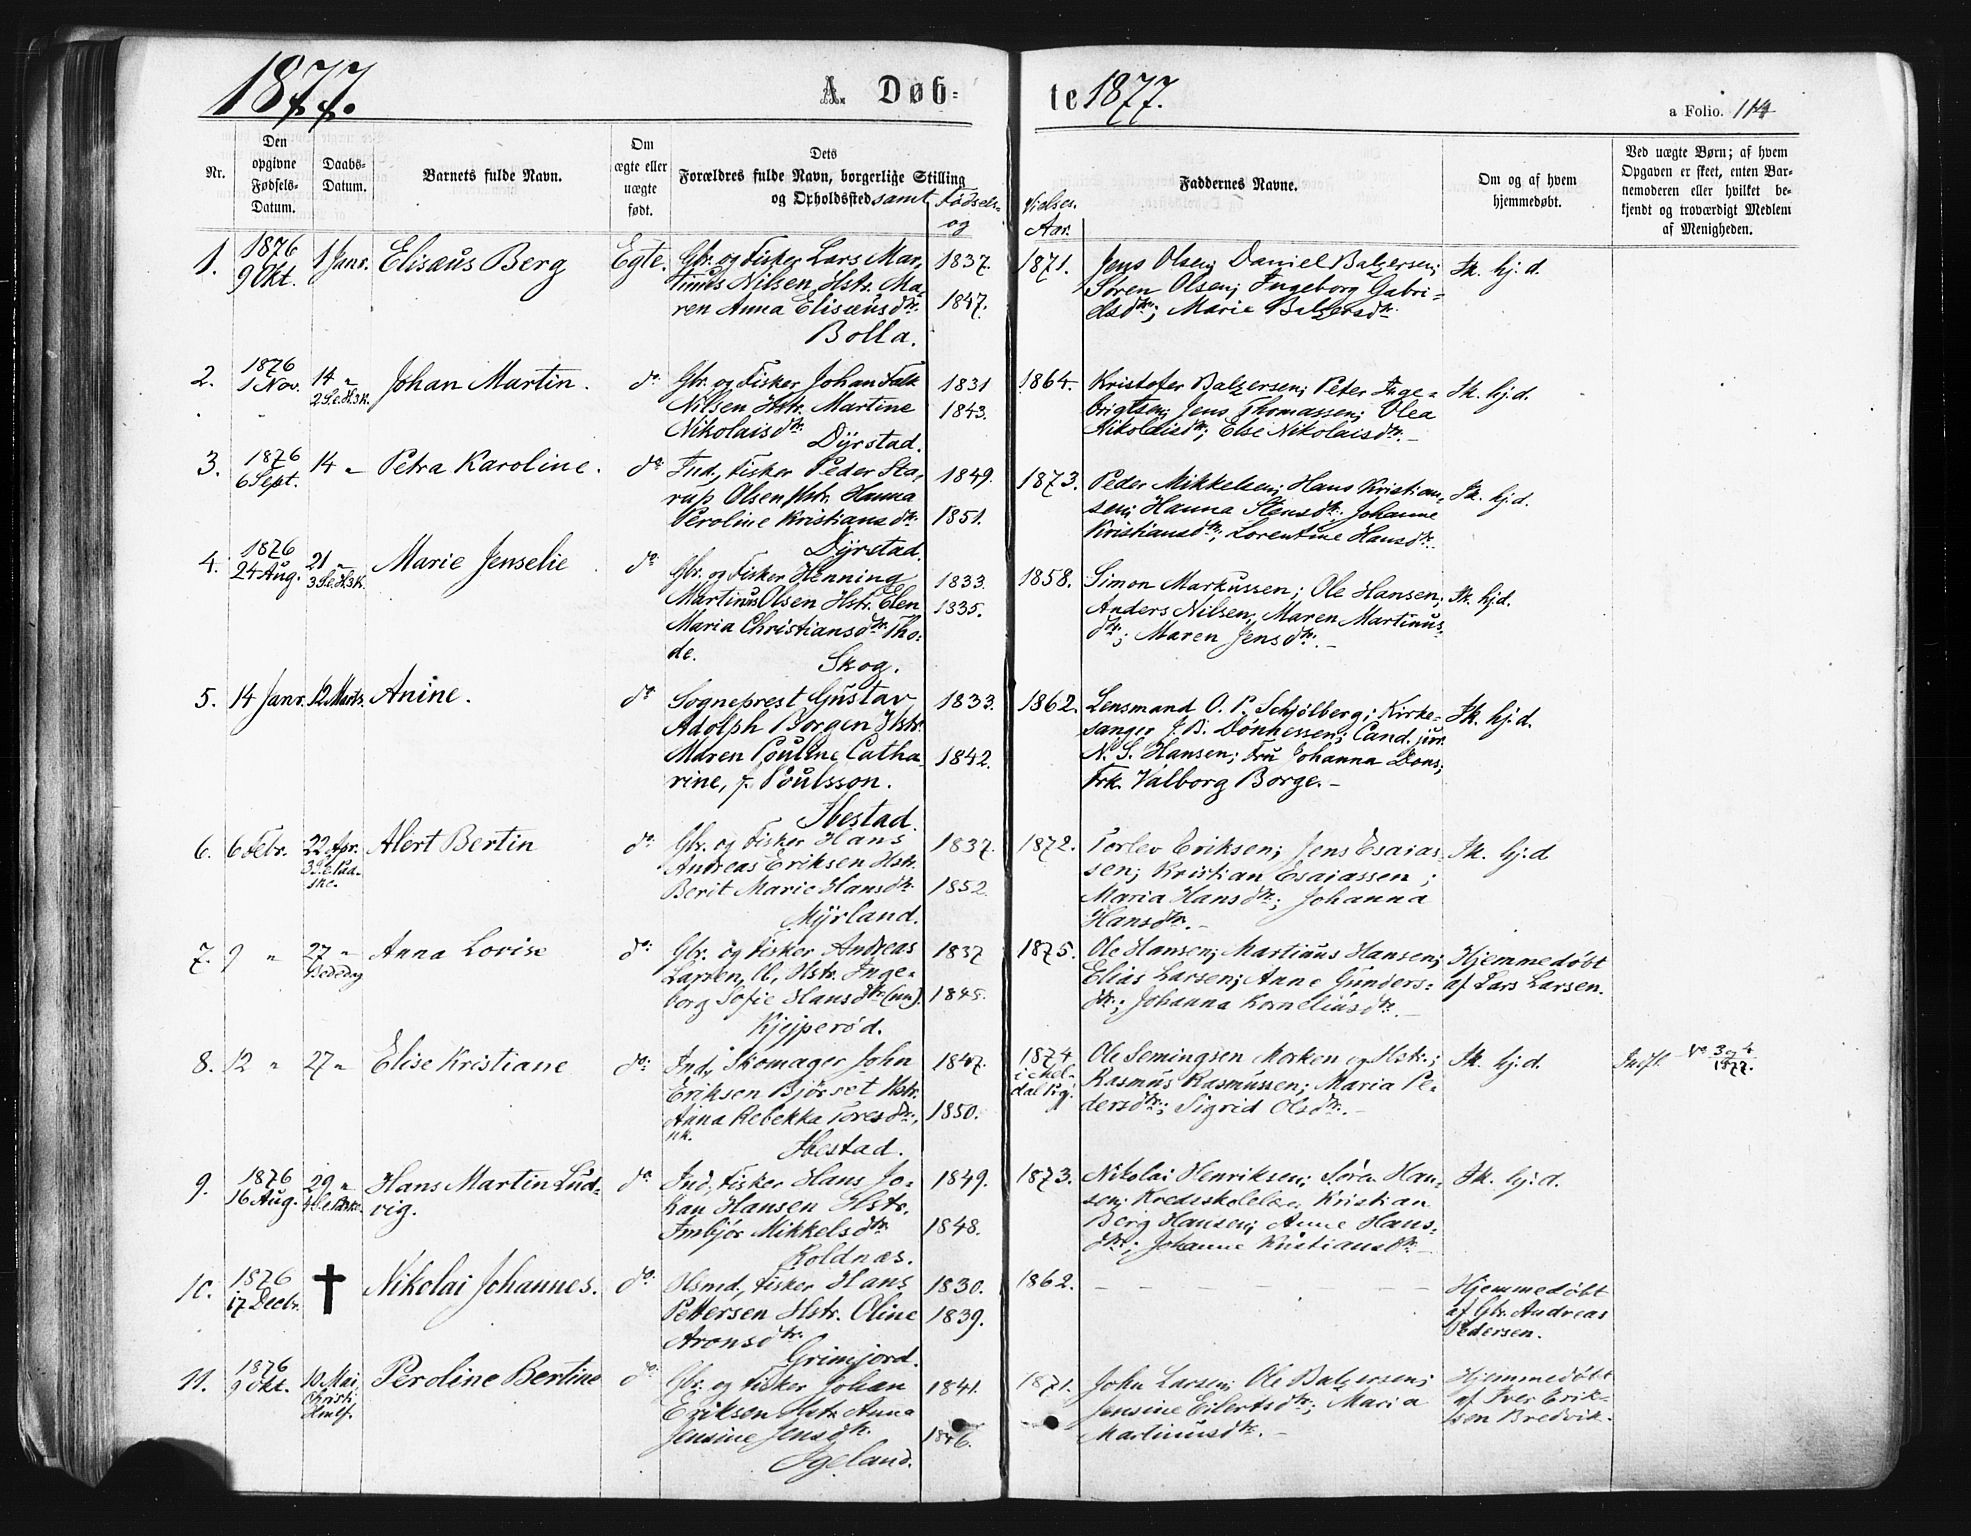 1877. A. Døb-
te 1877. a Folio. 114
Nr.
Den opgivne Fødsels-Datum.
Daabs-Datum.
Barnets fulde Navn.
Om ægte eller uægte født.
Dets Forældres fulde Navn, borgerlige Stilling og Opholdssted samt Fødsels- og
Vielses. Aar.
Faddernes Navne.
Om og af hvem hjemmedøbt.
Ved uægte Børn; af hvem Opgaven er skeet, enten Barnemoderen eller hvilket bekjendt og troværdigt Medlem af Menigheden.
1. 1876 9 Okt. 1 Janr. Elisæus Berg Egte.
Gbr. og Fisker Lars Mar-
tinus Nilsen Hstr. Ma-
ren Anna Elisæusdtr.
Bolla.
1837. 1847. 1871.
Jens Olsen; Daniel Balzersen;
Søren Olsen; Ingeborg Gabri-
elsdtr.; Marie Balzersdtr.
Ik. hj.d.
2. 1876 1 Nov. 14 " 2 S.e.H3K. Johan Martin. do
Gbr. og Fisker Johan Falk
Nilsen Hstr. Martine
Nikolaisdtr.
Dyrstad.
1831 1843. 1864.
Kristofer Balzersen; Peter Inge-
brigtsen; Jens Thomassen; Olea
Nikolaisdtr.; Else Nikolaisdtr. –
Ik. hj.d.
3. 1876 6 Sept. 14 " Petra Karoline. do
Ind., Fisker Peder Sta-
rup Olsen Hstr. Hanna
Peroline Kristiansdtr.
Dyrstad.
1849. 1851. 1873.
Peder Mikkelsen; Hans Kristian-
sen; Hanna Stensdtr. Johanne
Kristiansdtr.; Lorentine Hansdtr.
Ik. hj.d.
4. 1876 24 Aug. 21 " 3 S.e.H3K. Marie Jenselie do
Gbr. og Fisker Henning
Martinus Olsen Hstr. Elen
Maria Christiansdtr. Tho-
de.
Skog.
1833. 1835. 1858.
Simon Markussen; Ole Hansen;
Anders Nilsen, Maren Martinus-
dtr.; Maren Jensdtr. –
Ik. hj.d.
5. 14 Janr. 12 Marts. Anine. do
Sogneprest Gustav
Adolph Borgen Hstr.
Maren Pouline Catha-
rine, f. Poulsson.
Ibestad.
1833. 1842. 1862.
Lensmand O. P. Schjølberg; Kirke-
sanger J. B. Dønnessen; Cand. jur.
N. S. Hansen; Fru Johanna Dons;
Frk. Valborg Borge. –
Ik. hj.d.
6. 6 Febr. 22 Apr. 3 S.e. Paaske. Alert Bertin do
Gbr. og Fisker Hans
Andreas Eriksen Hstr.
Berit Marie Hansdtr.
Myrland.
1837. 1852. 1872.
Torlev Eriksen; Jens Esaias-
sen; Kristian Esaiassen;
Maria Hansdtr.; Johanna
Hansdtr. –
Ik. hj.d
7. 9 " 27 " Bededag Anna Lovise do
Gbr. og Fisker Andreas
Larsen, Hstr. Inge-
borg Sofie Hansdtr.
Kjejperød.
1837 1845. 1875.
Ole Hansen; Martinus Hansen;
Elias Larsen; Anne Gunders-
dtr.; Johanna Korneliusdtr. –
Hjemmedøbt
af Lars Larsen.
8. 12 " 27 " Elise Kristiane do
Ind., Skomager John
Eriksen Bjørset Hstr.
Anna Rebekka Toresdtr.,
Ibestad.
1847. 1850. 1874
Ole Semingsen Morken og Hstr.;
Rasmus Rasmussen; Maria Pe-
dersdtr.; Sigrid Olsdtr. –
Ik. hj.d.
Indfl. No 3 og 4 1877.
9. 1876 16 Aug. 29 " 4 S.e. Paaske. Hans Martin Lud-
vig. do
Ind., Fisker Hans Jo-
han Hansen Hstr.
Imbjør Mikkelsdtr.
Roldnæs.
1849. 1848. 1873.
Nikolai Henriksen; Søren Han-
sen; Kredsskolelær. Kristian
Berg Hansen; Anne Hans-
dtr.; Johanne Kristiansdtr. –
Ik. hj.d.
10. 1876 17 Decbr. ✝ Nikolai Johannes. do
Hsmd., Fisker Hans
Pettersen Hstr. Oline
Aronsdtr.
Grimjord.
1830. 1839. 1862. – – – –
Hjemmedøbt
af Gbr. Andreas
Pedersen.
11. 1876 9 Okt. 10 Mai Christi Hmlf. Peroline Bertine do
Gbr. og Fisker Johan
Eriksen Hstr. Anna
Jensine Jensdtr.
Igeland.
1841. 1846. 1871.
John Larsen; Ole Balzersen;
Jensine Eilertsdtr.; Maria
Martinusdtr. –
Hjemmedøbt
af Iver Erik-
sen Bredvik.